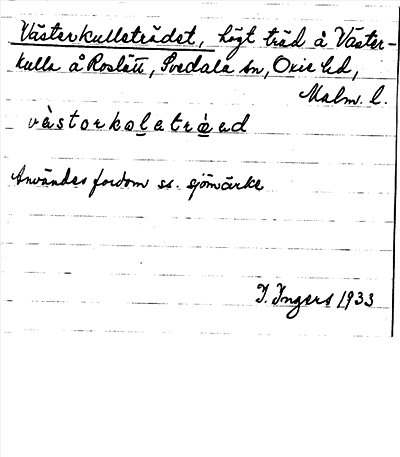 Västerkullaträdet, högt träd å Väster-
kulla å Roslätt, Svedala sn, Oxie hd,
Malm. l.
vàstorkolatrèed
Användes fordom ss. sjömärke
I. Ingers 1933